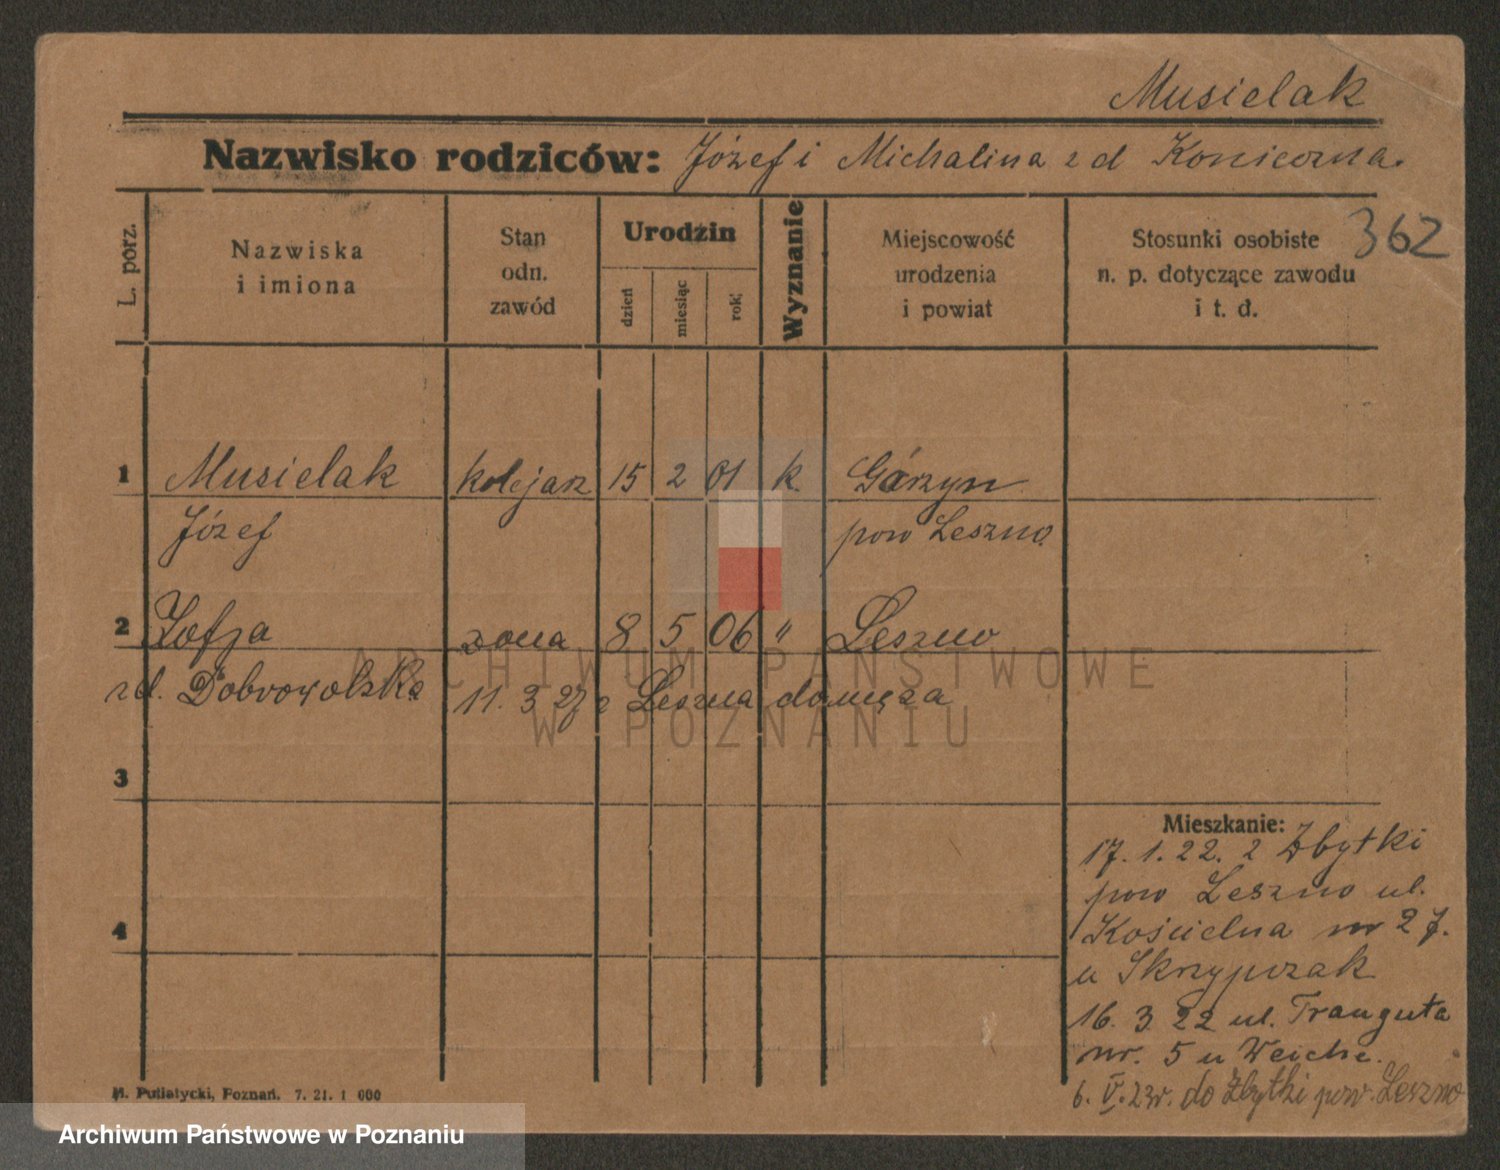 Musielak
Nazwisko rodziców: Józef i Michalina z d Konieczna.
362
L. porz.
Nazwiska
i imiona
Stan
odn.
zawód
Urodzin
dzień
miesiąc
rok
Wyznanie
Miejscowość
urodzenia
i powiat
Stosunki osobiste
n. p. dotyczące zawodu
i t. d.
1 Musielak kolejarz 15 2 01 k. Górzyn
Józef pow Leszno
2 Zofja żona 8 5 06 " Leszno
zd. Dobrowolska 11. 3 27 z Leszna do męża
3
4
Mieszkanie:
17. 1. 22. z Zbytki
pow Leszno ul.
Kościelna nr 27.
u Skrzypczak
16. 3 22 ul. Trauguta
nr. 5 u Weiche.
6. V. 23r. do Zbytki pow. Leszno
M. Putiatycki, Poznań. 7. 21. 1 000
ARCHIWUM PAŃSTWOWE
W POZNANIU
Archiwum Państwowe w Poznaniu